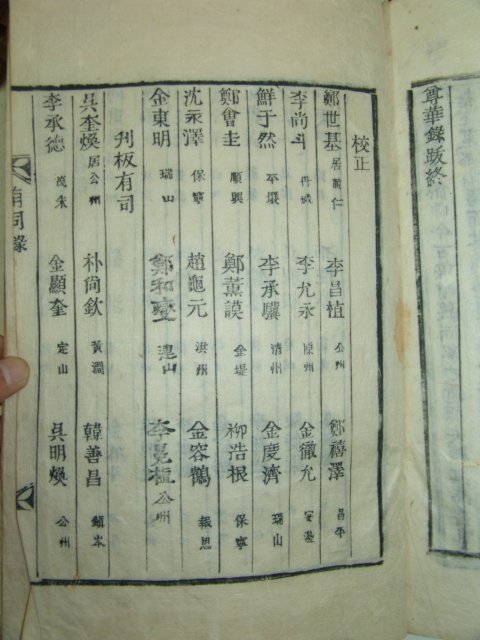 尊華錄跋終
校正
鄭世基 居懷仁 李昌植 公州 鄭禧澤 昌平
李尚斗 丹城 李允永 原州 金徹允
鮮于然 平壤 李承驥 清州 金度濟 瑞山
鄭會圭 順興 鄭薰謨 金堤 柳浩根 保寧
沈永澤 保寧 趙龜元 洪州 金容鶴 報恩
金東明 瑞山 鄭和 李冕植 公州
刊板有司
吳奎煥 居公州 朴尚欽 黃澗 韓善昌 鎮岑
李承德 茂朱 金顯奎 定山 吳明煥 公州
有司錄